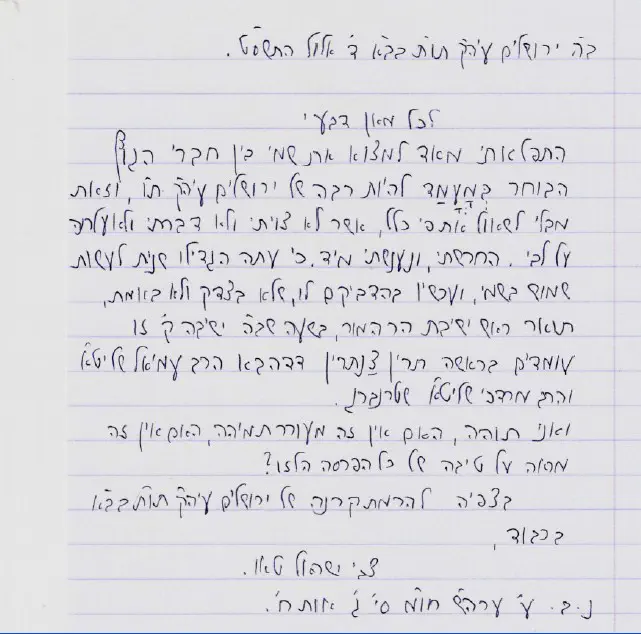 ב״ה ירושלים עיה״ק תות״ב בב״א ד׳ אלול התשס״ט.
לכל מאן דבעי
התפלאתי מאד למצוא את שמי בין חברי הגוף
הבוחר במעמד להיות רבה של ירושלים עיה״ק ת״ו, וזאת
מבלי לשאול את פי כלל, אשר לא צויתי ולא דברתי ולא עלתה
על לבי. החרשתי, ונענשתי מיד. כי עתה הגדילו שנית לעשות
שמוש בשמי, ועכשיו בהדביקם לו, שלא בצדק ולא באמת,
תואר ראש ישיבת הר המור, בשעה שב״ה ישיבה ק׳ זו
עומדים בראשה תרין צנתרין דדהבא הרב עמיאל שליט״א
והרב מרדכי שליט״א שטרנברג.
ואני תוהה, האם אין זה מעורר תמיהה, האם אין זה
מראה על טיבה של כל הפרסה הלזו?
בצפיה להרמת קרנה של ירושלים עיה״ק תות״ב בב״א
בכבוד,
צבי ישראל טאו.
נ.ב. ע׳ ערוה״ש חו״מ סי׳ ג׳ אות ח׳.